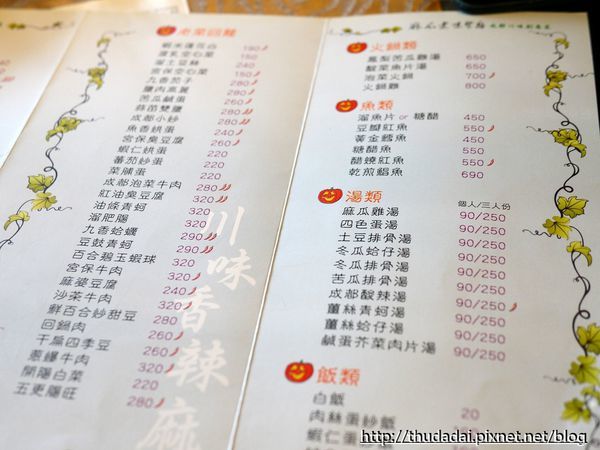 老菜回籠
蝦米蓮花白 190
腐乳空心菜 150
溜土豆絲 240
宮保空心菜 160
九香茄子 280
臘肉高麗 280
苦瓜鹹蛋 260
蒜苗雙臘 280
成都小炒 280
魚香烘蛋 240
宮保臭豆腐 260
蝦仁烘蛋 220
蕃茄炒蛋 220
菜脯蛋 220
成都泡菜牛肉 280
紅油臭豆腐 220
油條青蚵 320
溜肥腸 320
九香蛤蠣 290
豆豉青蚵 290
百合碧玉蝦球 320
宮保牛肉 320
麻婆豆腐 240
沙茶牛肉 320
鮮百合炒甜豆 280
回鍋肉 260
干扁四季豆 260
蔥爆牛肉 320
開陽白菜 220
五更腸旺 280
川味香辣麻
火鍋類
鳳梨苦瓜雞湯 650
酸菜魚片湯 650
泡菜火鍋 700
火鍋雞 800
魚類
溜魚片 or 糖醋 450
豆瓣魟魚 550
黃金鱈魚 450
糖醋魚 550
醋燒魟魚 550
乾煎鯧魚 690
湯類 個人/三人份
麻瓜雞湯 90/250
四色蛋湯 90/250
土豆排骨湯 90/250
冬瓜蛤仔湯 90/250
冬瓜排骨湯 90/250
苦瓜排骨湯 90/250
成都酸辣湯 90/250
薑絲青蚵湯 90/250
薑絲蛤仔湯 90/250
鹹蛋芥菜肉片湯 90/250
飯類
白飯 20
肉絲蛋炒飯
蝦仁蛋炒飯
http://thudadai.pixnet.net/blog